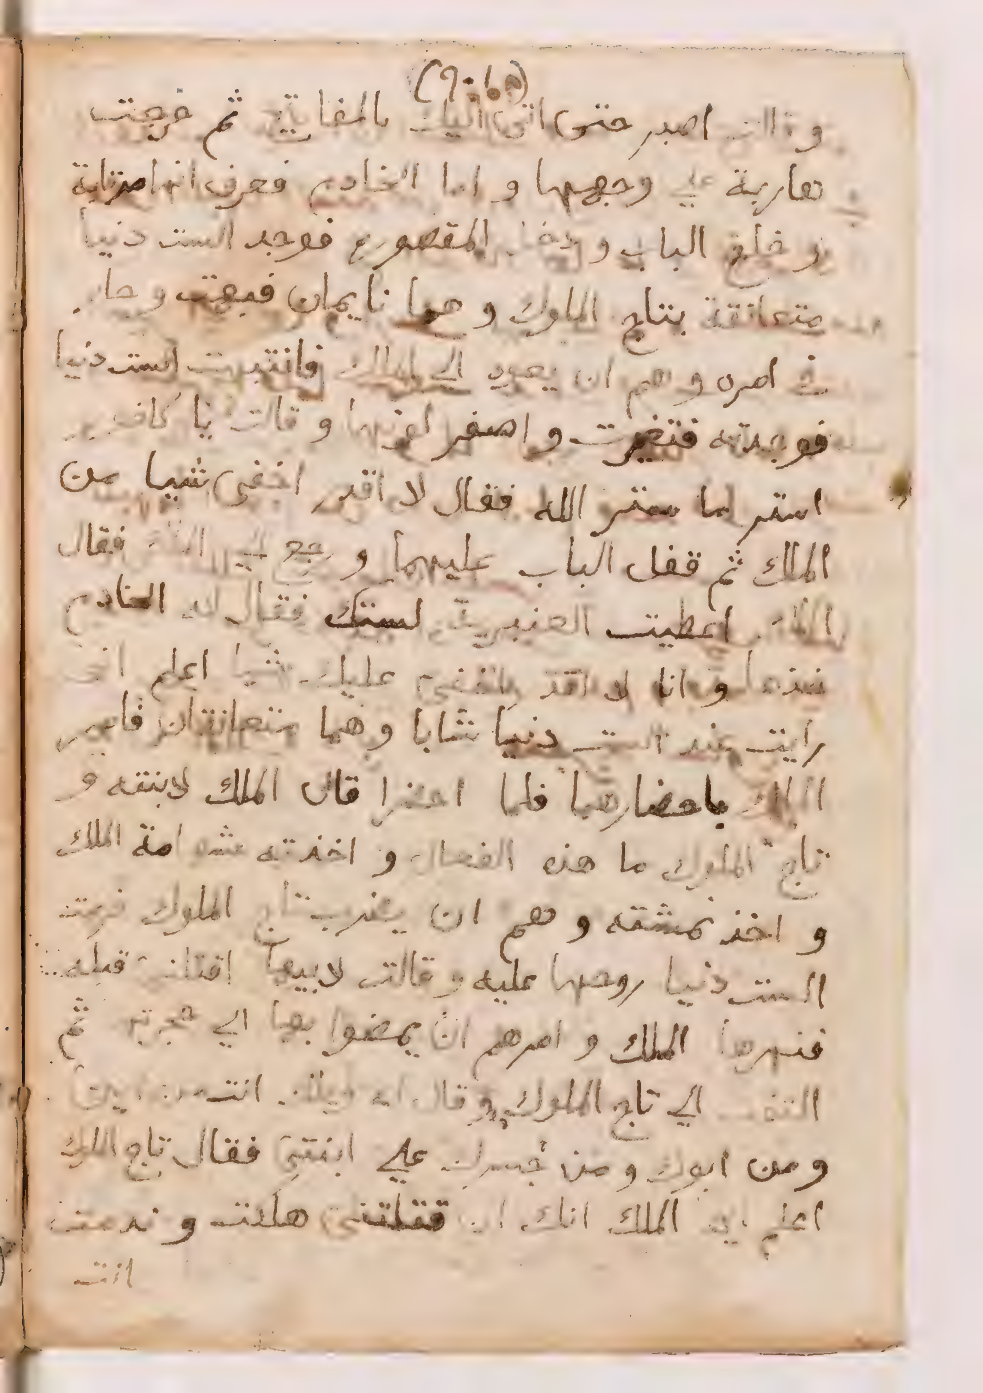 وقالت اصبر حتى اتى اليك بالمفاتيح ثم خرجت
هاربة علي وجهها و اما الخادم فعرف انها مرتابة
و خلع الباب و دخل المقصورة فوجد الست دنيا
متعانقة بتاج الملوك و هما نايمان فبهت و حار
في امره و هم ان يعود الي الملك فانتبهت الست دنيا
فوجدته فتغيرت و اصفر لونها و قالت يا كافور
استر ما ستر الله فقال لا اقدر اخفى شيا من
الملك ثم قفل الباب عليهما و رجع الي الملك فقال
الملك اعطيت العنبرية لستك فقال له الخادم
خذها و انا لا اقدر اخفى عليك شيا اعلم انى
رايت عند الست دنيا شابا و هما متعانقان فامر
الملك باحضارهما فلما احضرا قال الملك لابنته و
تاج الملوك ما هذه الفعال و اخذته شهامة الملك
و اخذ نمشته و هم ان يضرب تاج الملوك فرمت
الست دنيا روحها عليه و قالت لابيها اقتلنى قبله
فنهرها الملك و امرهم ان يمضوا بها الي حجرتها ثم
التفت الي تاج الملوك و قال له ويلك انت من اين
و من ابوك و من جسرك علي ابنتى فقال تاج الملوك
اعلم ايها الملك انك ان قتلتنى هلكت و ندمت
انت